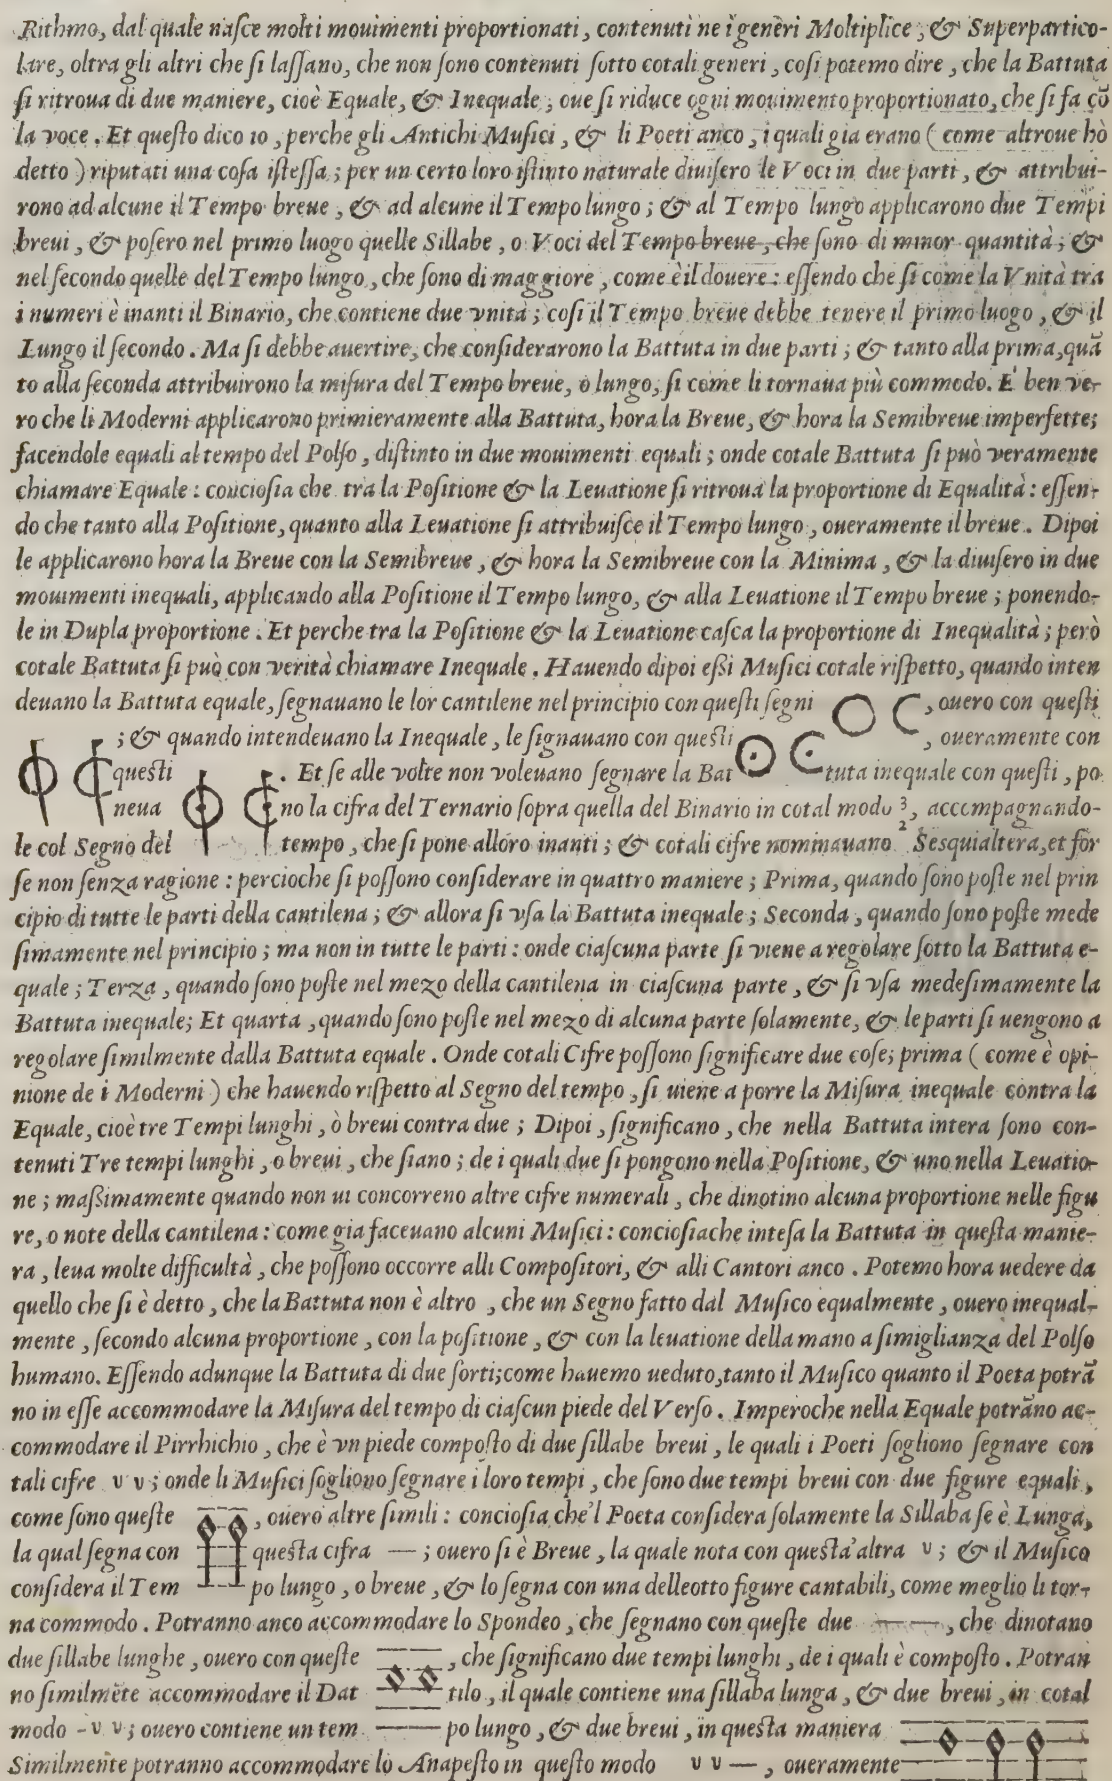 Rithmo, dal quale naſce molti mouimenti proportionati, contenuti ne i generi Moltiplice, & Superpartico-
lare, oltra gli altri che ſi laſſano, che non ſono contenuti ſotto cotali generi, coſi potemo dire, che la Battuta
ſi ritroua di due maniere, cioè Equale, & Inequale; oue ſi riduce ogni mouimento proportionato, che ſi fa cō
la voce. Et queſto dico io, perche gli Antichi Muſici, & li Poeti anco, i quali gia erano (come altroue hò
detto) riputati una coſa iſteſſa; per un certo loro iſtinto naturale diuiſero le Voci in due parti, & attribui-
rono ad alcune il Tempo breue, & ad alcune il Tempo lungo; & al Tempo lungo applicarono due Tempi
breui, & poſero nel primo luogo quelle Sillabe, o Voci del Tempo breue, che ſono di minor quantità; &
nel ſecondo quelle del Tempo lungo, che ſono di maggiore, come è il douere: eſſendo che ſi come la Vnità tra
i numeri è inanti il Binario, che contiene due vnità; coſi il Tempo breue debbe tenere il primo luogo, & il
Lungo il ſecondo. Ma ſi debbe auertire, che conſiderarono la Battuta in due parti; & tanto alla prima, quā
to alla ſeconda attribuirono la miſura del Tempo breue, o lungo, ſi come li tornaua più commodo. E' ben ve-
ro che li Moderni applicarono primieramente alla Battuta, hora la Breue, & hora la Semibreue imperfette;
facendole equali al tempo del Polſo, diſtinto in due mouimenti equali; onde cotale Battuta ſi può veramente
chiamare Equale: concioſia che tra la Poſitione & la Leuatione ſi ritroua la proportione di Equalità: eſſen-
do che tanto alla Poſitione, quanto alla Leuatione ſi attribuiſce il Tempo lungo, oueramente il breue. Dipoi
le applicarono hora la Breue con la Semibreue, & hora la Semibreue con la Minima, & la diuiſero in due
mouimenti inequali, applicando alla Poſitione il Tempo lungo, & alla Leuatione il Tempo breue; ponendo-
le in Dupla proportione. Et perche tra la Poſitione & la Leuatione caſca la proportione di Inequalità; però
cotale Battuta ſi può con verità chiamare Inequale. Hauendo dipoi eßi Muſici cotale riſpetto, quando inten
deuano la Battuta equale, ſegnauano le lor cantilene nel principio con queſti ſegni , ouero con queſti
; & quando intendeuano la Inequale, le ſignauano con queſti , oueramente con
queſti . Et ſe alle volte non voleuano ſegnare la Bat tuta inequale con queſti, po
neua no la cifra del Ternario ſopra quella del Binario in cotal modo 3/2, accompagnando-
le col Segno del tempo, che ſi pone alloro inanti; & cotali cifre nominauano Sesquialtera, et for
ſe non ſenza ragione: percioche ſi poſſono conſiderare in quattro maniere; Prima, quando ſono poſte nel prin
cipio di tutte le parti della cantilena; & allora ſi vſa la Battuta inequale; Seconda, quando ſono poſte mede
ſimamente nel principio; ma non in tutte le parti: onde ciaſcuna parte ſi viene a regolare ſotto la Battuta e-
quale; Terza, quando ſono poſte nel mezo della cantilena in ciaſcuna parte, & ſi vſa medeſimamente la
Battuta inequale; Et quarta, quando ſono poſte nel mezo di alcuna parte ſolamente, & le parti ſi uengono a
regolare ſimilmente dalla Battuta equale. Onde cotali Cifre poſſono ſignificare due coſe; prima (come è opi-
nione de i Moderni) che hauendo riſpetto al Segno del tempo, ſi uiene a porre la Miſura inequale contra la
Equale, cioè tre Tempi lunghi, ò breui contra due; Dipoi, ſignificano, che nella Battuta intera ſono con-
tenuti Tre tempi lunghi, o breui, che ſiano; de i quali due ſi pongono nella Poſitione, & uno nella Leuatio-
ne; maßimamente quando non ui concorreno altre cifre numerali, che dinotino alcuna proportione nelle figu
re, o note della cantilena: come gia faceuano alcuni Muſici: concioſiache inteſa la Battuta in queſta manie-
ra, leua molte difficultà, che poſſono occorre alli Compoſitori, & alli Cantori anco. Potemo hora uedere da
quello che ſi è detto, che la Battuta non è altro, che un Segno fatto dal Muſico equalmente, ouero inequal-
mente, ſecondo alcuna proportione, con la poſitione, & con la leuatione della mano a ſimiglianza del Polſo
humano. Eſſendo adunque la Battuta di due ſorti; come hauemo ueduto, tanto il Muſico quanto il Poeta potrā
no in eſſe accommodare la Miſura del tempo di ciaſcun piede del Verſo. Imperoche nella Equale potrāno ac-
commodare il Pirrhichio, che è vn piede compoſto di due ſillabe breui, le quali i Poeti ſogliono ſegnare con
tali cifre v v; onde li Muſici ſogliono ſegnare i loro tempi, che ſono due tempi breui con due figure equali,
come ſono queſte , ouero altre ſimili: concioſia che'l Poeta conſidera ſolamente la Sillaba ſe è Lunga,
la qual ſegna con queſta cifra —; ouero ſi è Breue, la quale nota con queſta altra v; & il Muſico
conſidera il Tem po lungo, o breue, & lo ſegna con una delleotto figure cantabili, come meglio li tor-
na commodo. Potranno anco accommodare lo Spondeo, che ſegnano con queſte due — —, che dinotano
due ſillabe lunghe, ouero con queſte , che ſignificano due tempi lunghi, de i quali è compoſto. Potran
no ſimilmēte accommodare il Dat tilo, il quale contiene una ſillaba lunga, & due breui, in cotal
modo - v v; ouero contiene un tem po lungo, & due breui, in queſta maniera
Similmente potranno accommodare lo Anapeſto in queſto modo v v —, oueramente